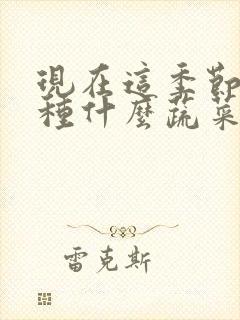 現在這季節
種什麼蔬菜
雷克斯